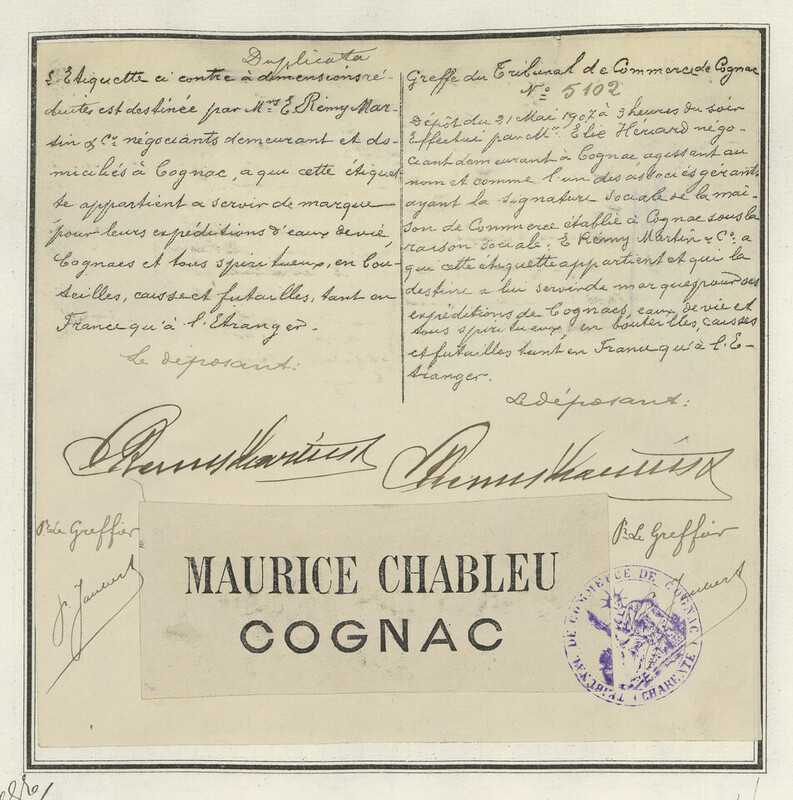 Duplicata
L'Etiquette ci contre à dimensions ré-
duites est destinée par Mrs E. Rémy Mar-
tin & Co négociants demeurant et do-
miciliés à Cognac, a qui cette étiquet-
te appartient a servir de marque
pour leurs expéditions d'eaux de vie,
Cognacs et tous spiritueux, en bou-
teilles, caisse et futailles, tant en
France qu'à l'Etranger.
Le déposant:
Greffe du Tribunal de Commerce de Cognac
No 5102
Dépôt du 21 Mai 1907 à 3 heures du soir
Effectué par Mr. Elie Hériard négo-
ciant demeurant à Cognac, agissant au
nom et comme l'un des associés gérants
ayant la signature sociale de la mai-
son de Commerce établie à Cognac sous la
raison sociale: E. Rémy Martin & Co. a
qui cette étiquette appartient et qui la
destine a lui servir de marque pour ses
expéditions de Cognacs, eaux de vie et
tous spiritueux, en bouteilles, caisses
et futailles tant en France qu'à l'E-
tranger.
Le déposant:
E Remy Martin & Co
E Remy Martin & Co
P. Le Greffier
P. Le Greffier
MAURICE CHABLEU
COGNAC
TRIBUNAL DE COMMERCE DE COGNAC (CHARENTE)